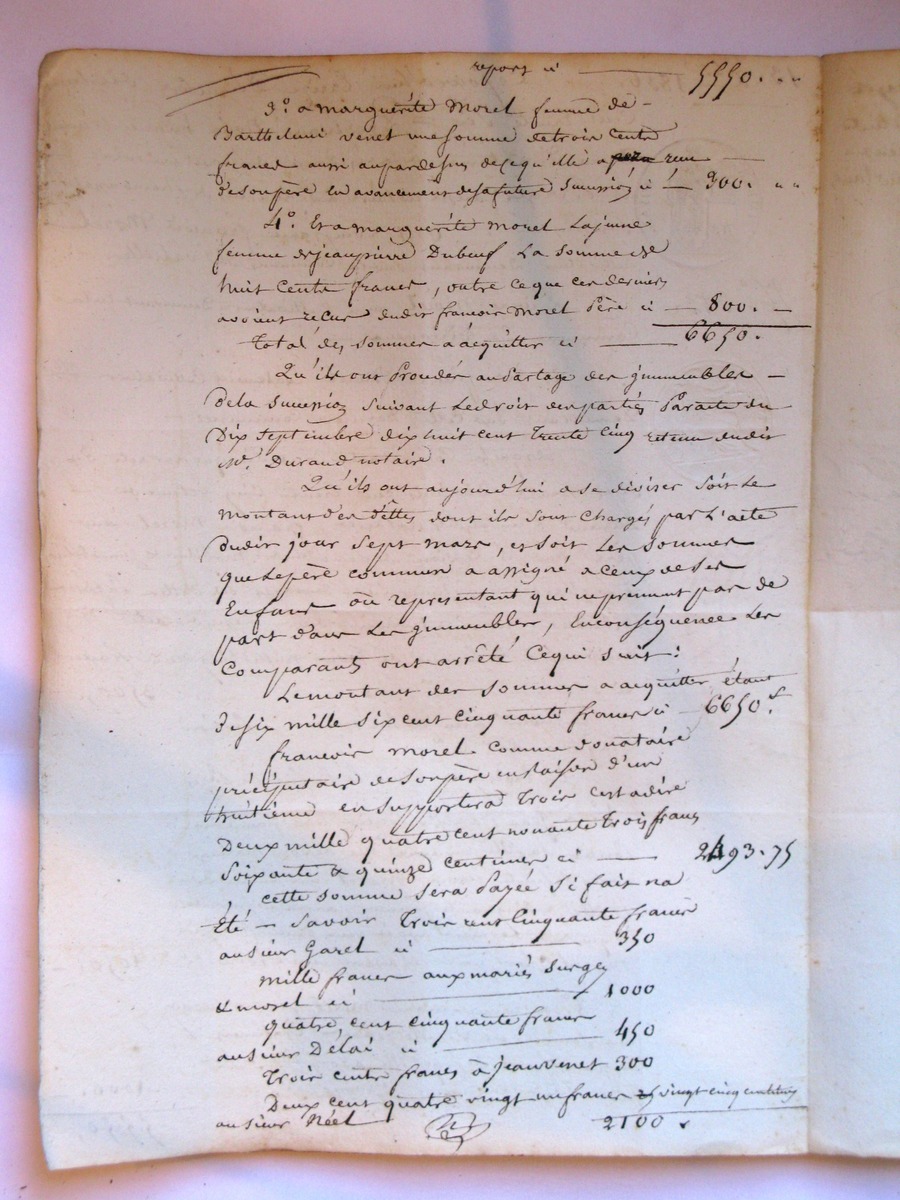 report ci 5550. " "
3.° a marguérite Morel femme de
Barthelemi venet une somme de trois cents
francs aussi aupardessus de ce qu'elle a reçu
de son père en avancement de sa future succession ci 300. " "
4.° Et a marguérite Morel La jeune
femme de jean pierre Dubeuf La somme de
huit cents francs, outre ce que ces derniers
avoient reçus dudit francois Morel Père ci 800.
Total des sommes a acquitter ci 6650.
Qu'ils ont Procédés au Partage des jmmeubles
de la succession suivant Le droit des parties Par acte du
Dix Septembre dix huit cent Trente Cinq retenu dudit
M.e Durand notaire.
Qu'ils ont aujourd'hui a se diviser Soit Le
montant des dêttes dont ils sont chargés par L'acte
dudit jour sept mars, et soit Les sommes
que Le père commun a assigné a ceux de ses
Enfans où représentant qui ne prennent pas de
part dans Les jmmeubles, En conséquence Les
Comparants ont arrêté Ce qui suit:
Le montant des sommes a acquitter étant
de six mille six cent cinquante francs ci 6650.f
francois Morel comme donataire
préciputaire de son père en raison d'un
huitième en supportera Trois c'est adire
Deux mille quatre cent nonante Trois francs
Soixante & quinze centimes ci 2493.75
cette somme sera Payée si fait na
Été Savoir Trois cent Cinquante francs
au sieur Garel ci 350
Mille francs aux mariés Surgey
& morel ci 1000
quatre cent cinquante francs
au sieur Délai ci 450
Trois cents francs à jean venet 300
Deux cent quatre vingt un francs vingt cinq centimes
au sieur Néel
2100